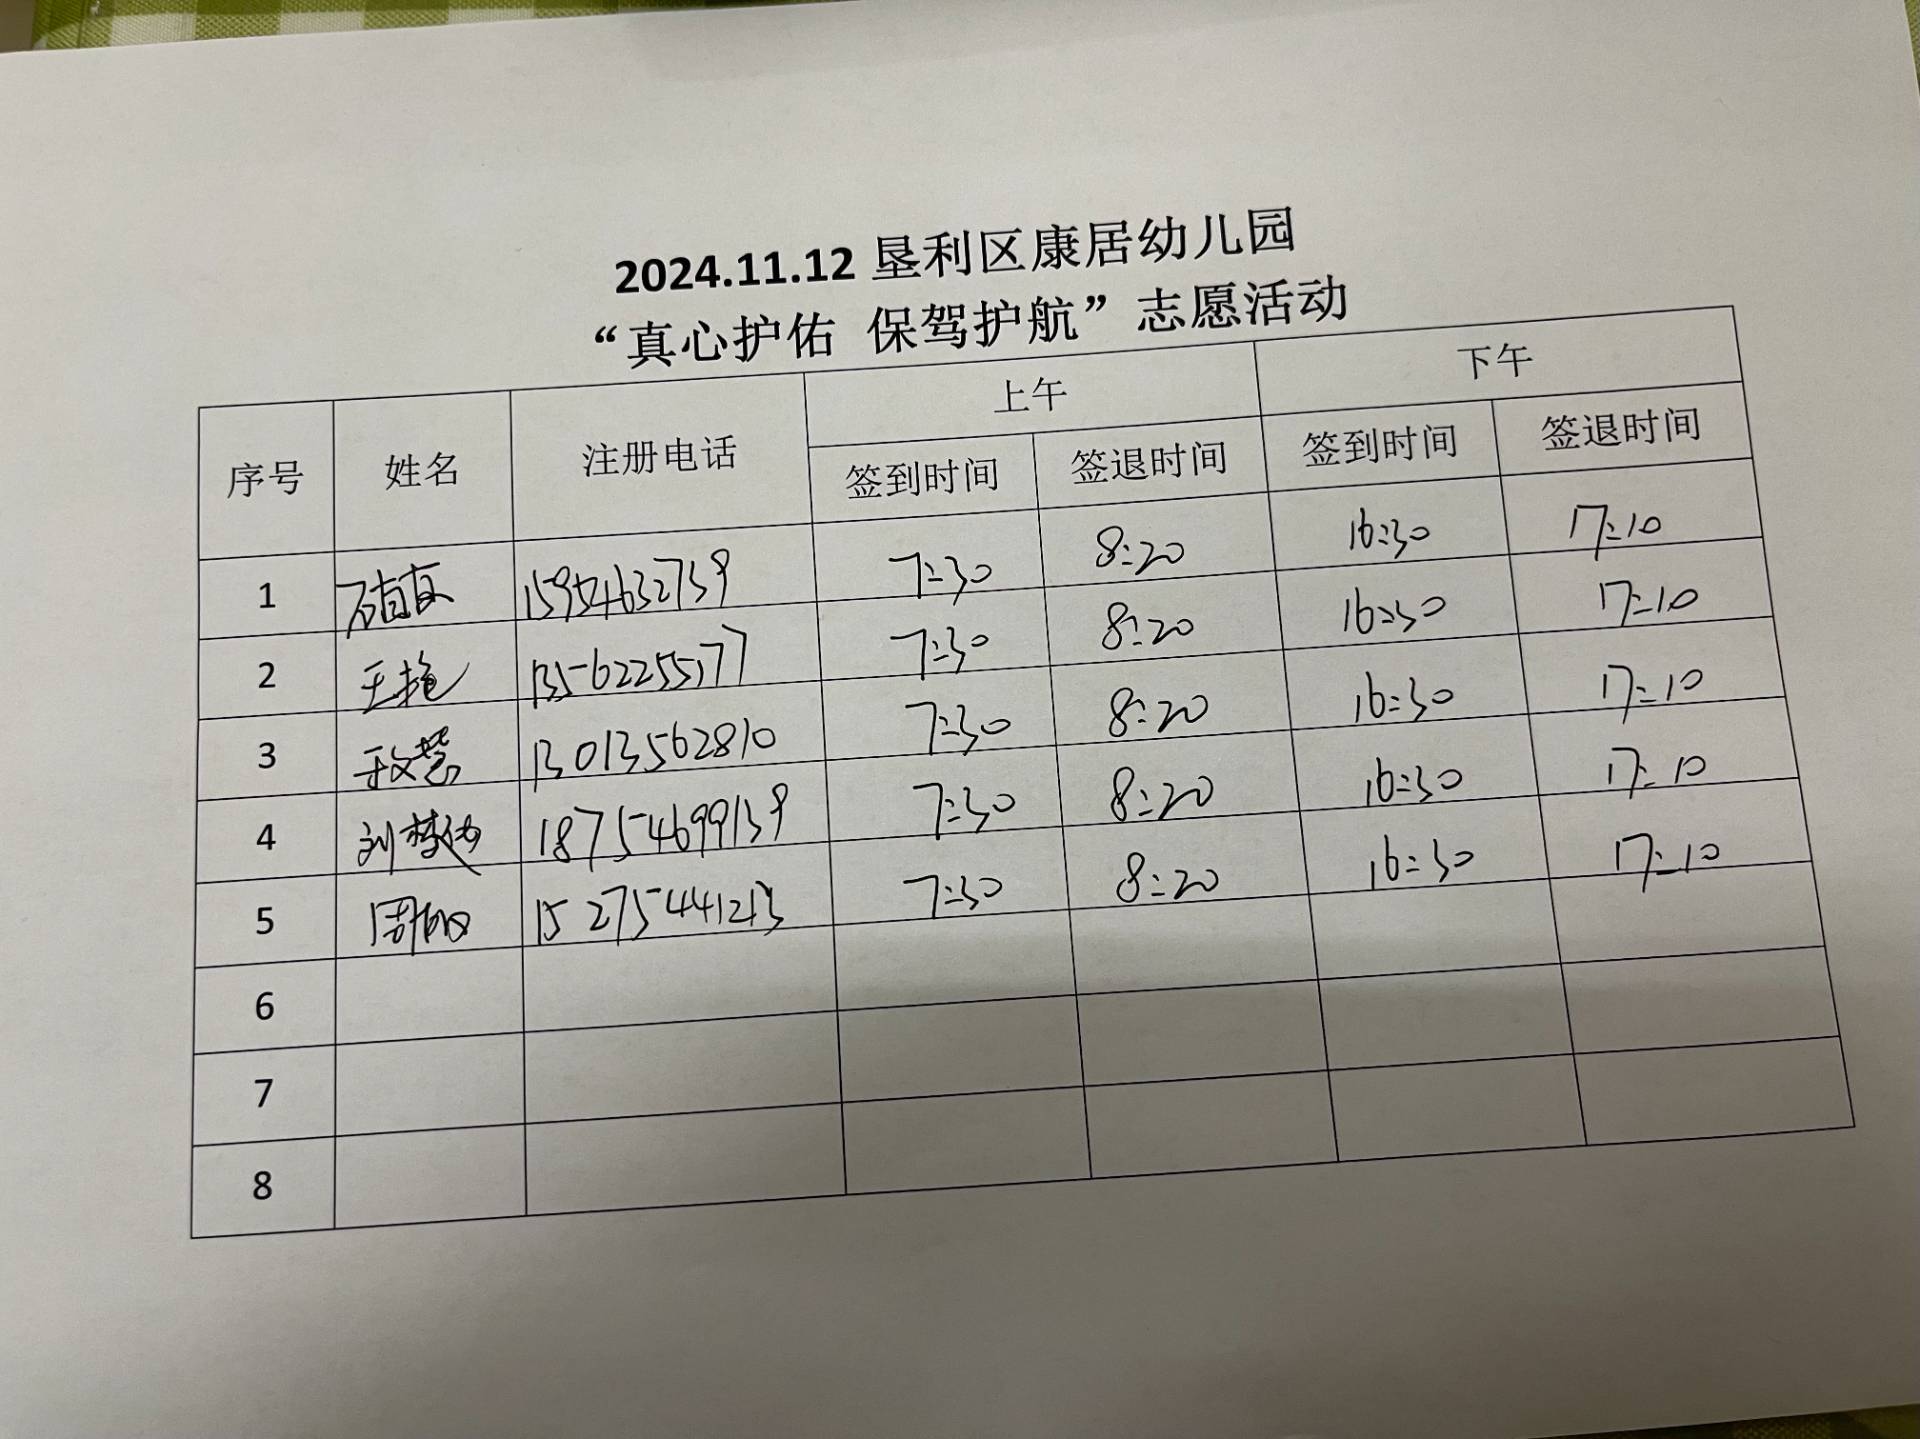 2024.11.12 垦利区康居幼儿园
“真心护佑 保驾护航”志愿活动
序号 姓名 注册电话 上午 下午
签到时间 签退时间 签到时间 签退时间
1 15954632739 7:30 8:20 16:30 17:10
2 王艳 13562255177 7:30 8:20 16:30 17:10
3 于文慧 13013562810 7:30 8:20 16:30 17:10
4 刘梦 18754699139 7:30 8:20 16:30 17:10
5 周 15275441213 7:30 8:20 16:30 17:10
6
7
8